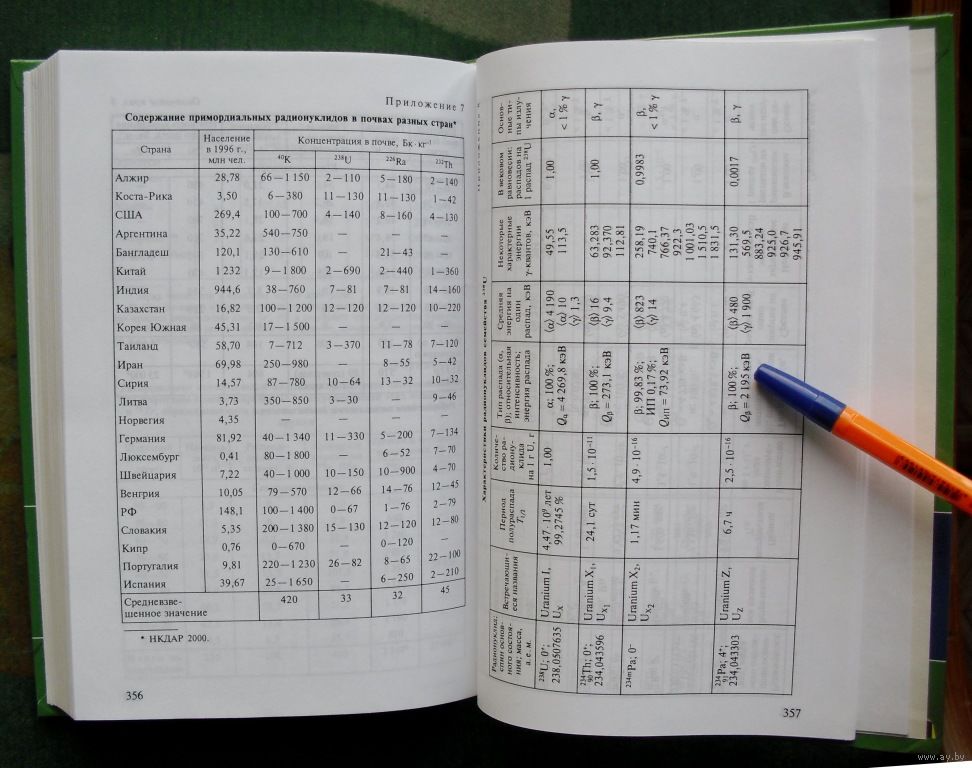 Приложение 7
Содержание примордиальных радионуклидов в почвах разных стран*
Страна Население в 1996 г., млн чел. Концентрация в почве, Бк · кг⁻¹
⁴⁰K ²³⁸U ²²⁶Ra ²³²Th
Алжир 28,78 66—1 150 2—110 5—180 2—140
Коста-Рика 3,50 6—380 11—130 11—130 1—42
США 269,4 100—700 4—140 8—160 4—130
Аргентина 35,22 540—750 — — —
Бангладеш 120,1 130—610 — 21—43 —
Китай 1 232 9—1 800 2—690 2—440 1—360
Индия 944,6 38—760 7—81 7—81 14—160
Казахстан 16,82 100—1 200 12—120 12—120 10—220
Корея Южная 45,31 17—1 500 — — —
Таиланд 58,70 7—712 3—370 11—78 7—120
Иран 69,98 250—980 — 8—55 5—42
Сирия 14,57 87—780 10—64 13—32 10—32
Литва 3,73 350—850 3—30 — 9—46
Норвегия 4,35 — — — —
Германия 81,92 40—1 340 11—330 5—200 7—134
Люксембург 0,41 80—1 800 — 6—52 7—70
Швейцария 7,22 40—1 000 10—150 10—900 4—70
Венгрия 10,05 79—570 12—66 14—76 12—45
РФ 148,1 100—1 400 0—67 1—76 2—79
Словакия 5,35 200—1 380 15—130 12—120 12—80
Кипр 0,76 0—670 — 0—120 —
Португалия 9,81 220—1 230 26—82 8—65 22—100
Испания 39,67 25—1 650 — 6—250 2—210
Средневзве-
шенное значение 420 33 32 45
* НКДАР 2000.
356
Характеристики радионуклидов семейства ²³⁸U
Радионуклид; спин основ-
ного состоя-
ния; масса,
а. е. м.
Встречающи-
еся названия
Период
полураспада
T₁/₂
Количе-
ство ра-
диону-
клида
на 1 г U, г
Тип распада (α,
β); относительная
интенсивность;
энергия распада
Средняя
энергия на
один
распад, кэВ
Некоторые
характерные
энергии
γ-квантов, кэВ
В вековом
равновесии:
распадов на
1 распад ²³⁸U
Основ-
ные ти-
пы излу-
чения
²³⁸U; 0⁺;
238,0507635
Uranium I,
Ux
4,47 · 10⁹ лет
99,2745 %
1,00
α; 100 %;
Qα = 4 269,8 кэВ
⟨α⟩ 4 190
⟨α⟩ 10
⟨γ⟩ 1,3
49,55
113,5
1,00
α,
< 1 % γ
²³⁴₉₀Th; 0⁺;
234,043596
Uranium X₁,
Ux₁
24,1 сут
1,5 · 10⁻¹¹
β; 100 %;
Qβ = 273,1 кэВ
⟨β⟩ 16
⟨γ⟩ 9,4
63,283
92,370
112,81
1,00
β, γ
²³⁴ᵐPa; 0⁻
Uranium X₂,
Ux₂
1,17 мин
4,9 · 10⁻¹⁶
β; 99,83 %;
ИП 0,17 %;
Qип = 73,92 кэВ
⟨β⟩ 823
⟨γ⟩ 14
258,19
740,1
766,37
922,3
1 001,03
1 510,5
1 831,5
0,9983
β,
< 1 % γ
²³⁴₉₁Pa; 4⁺;
234,043303
Uranium Z,
Uz
6,7 ч
2,5 · 10⁻¹⁶
β; 100 %;
Qβ = 2 195 кэВ
⟨β⟩ 480
⟨γ⟩ 1 900
131,30
569,5
883,24
925,0
926,7
945,91
0,0017
β, γ
357
www.ay.by